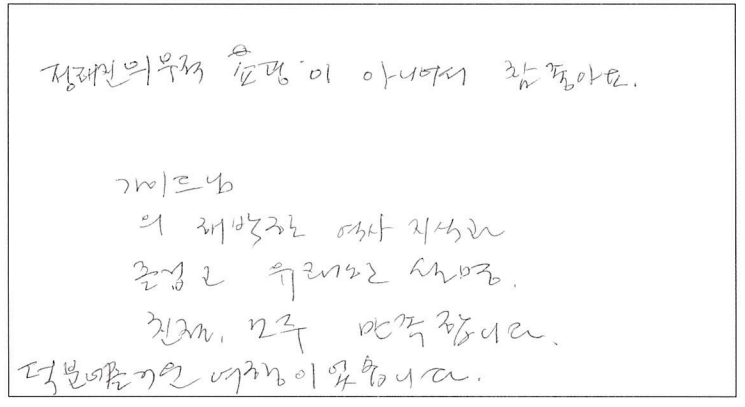 의무적 쇼핑이 아니어서 참 좋아요.
가이드님
의 해박한 역사 지식과
즐겁고 유쾌한 설명.
친절, 모두 만족합니다.
덕분에 즐거운 여행이었습니다.